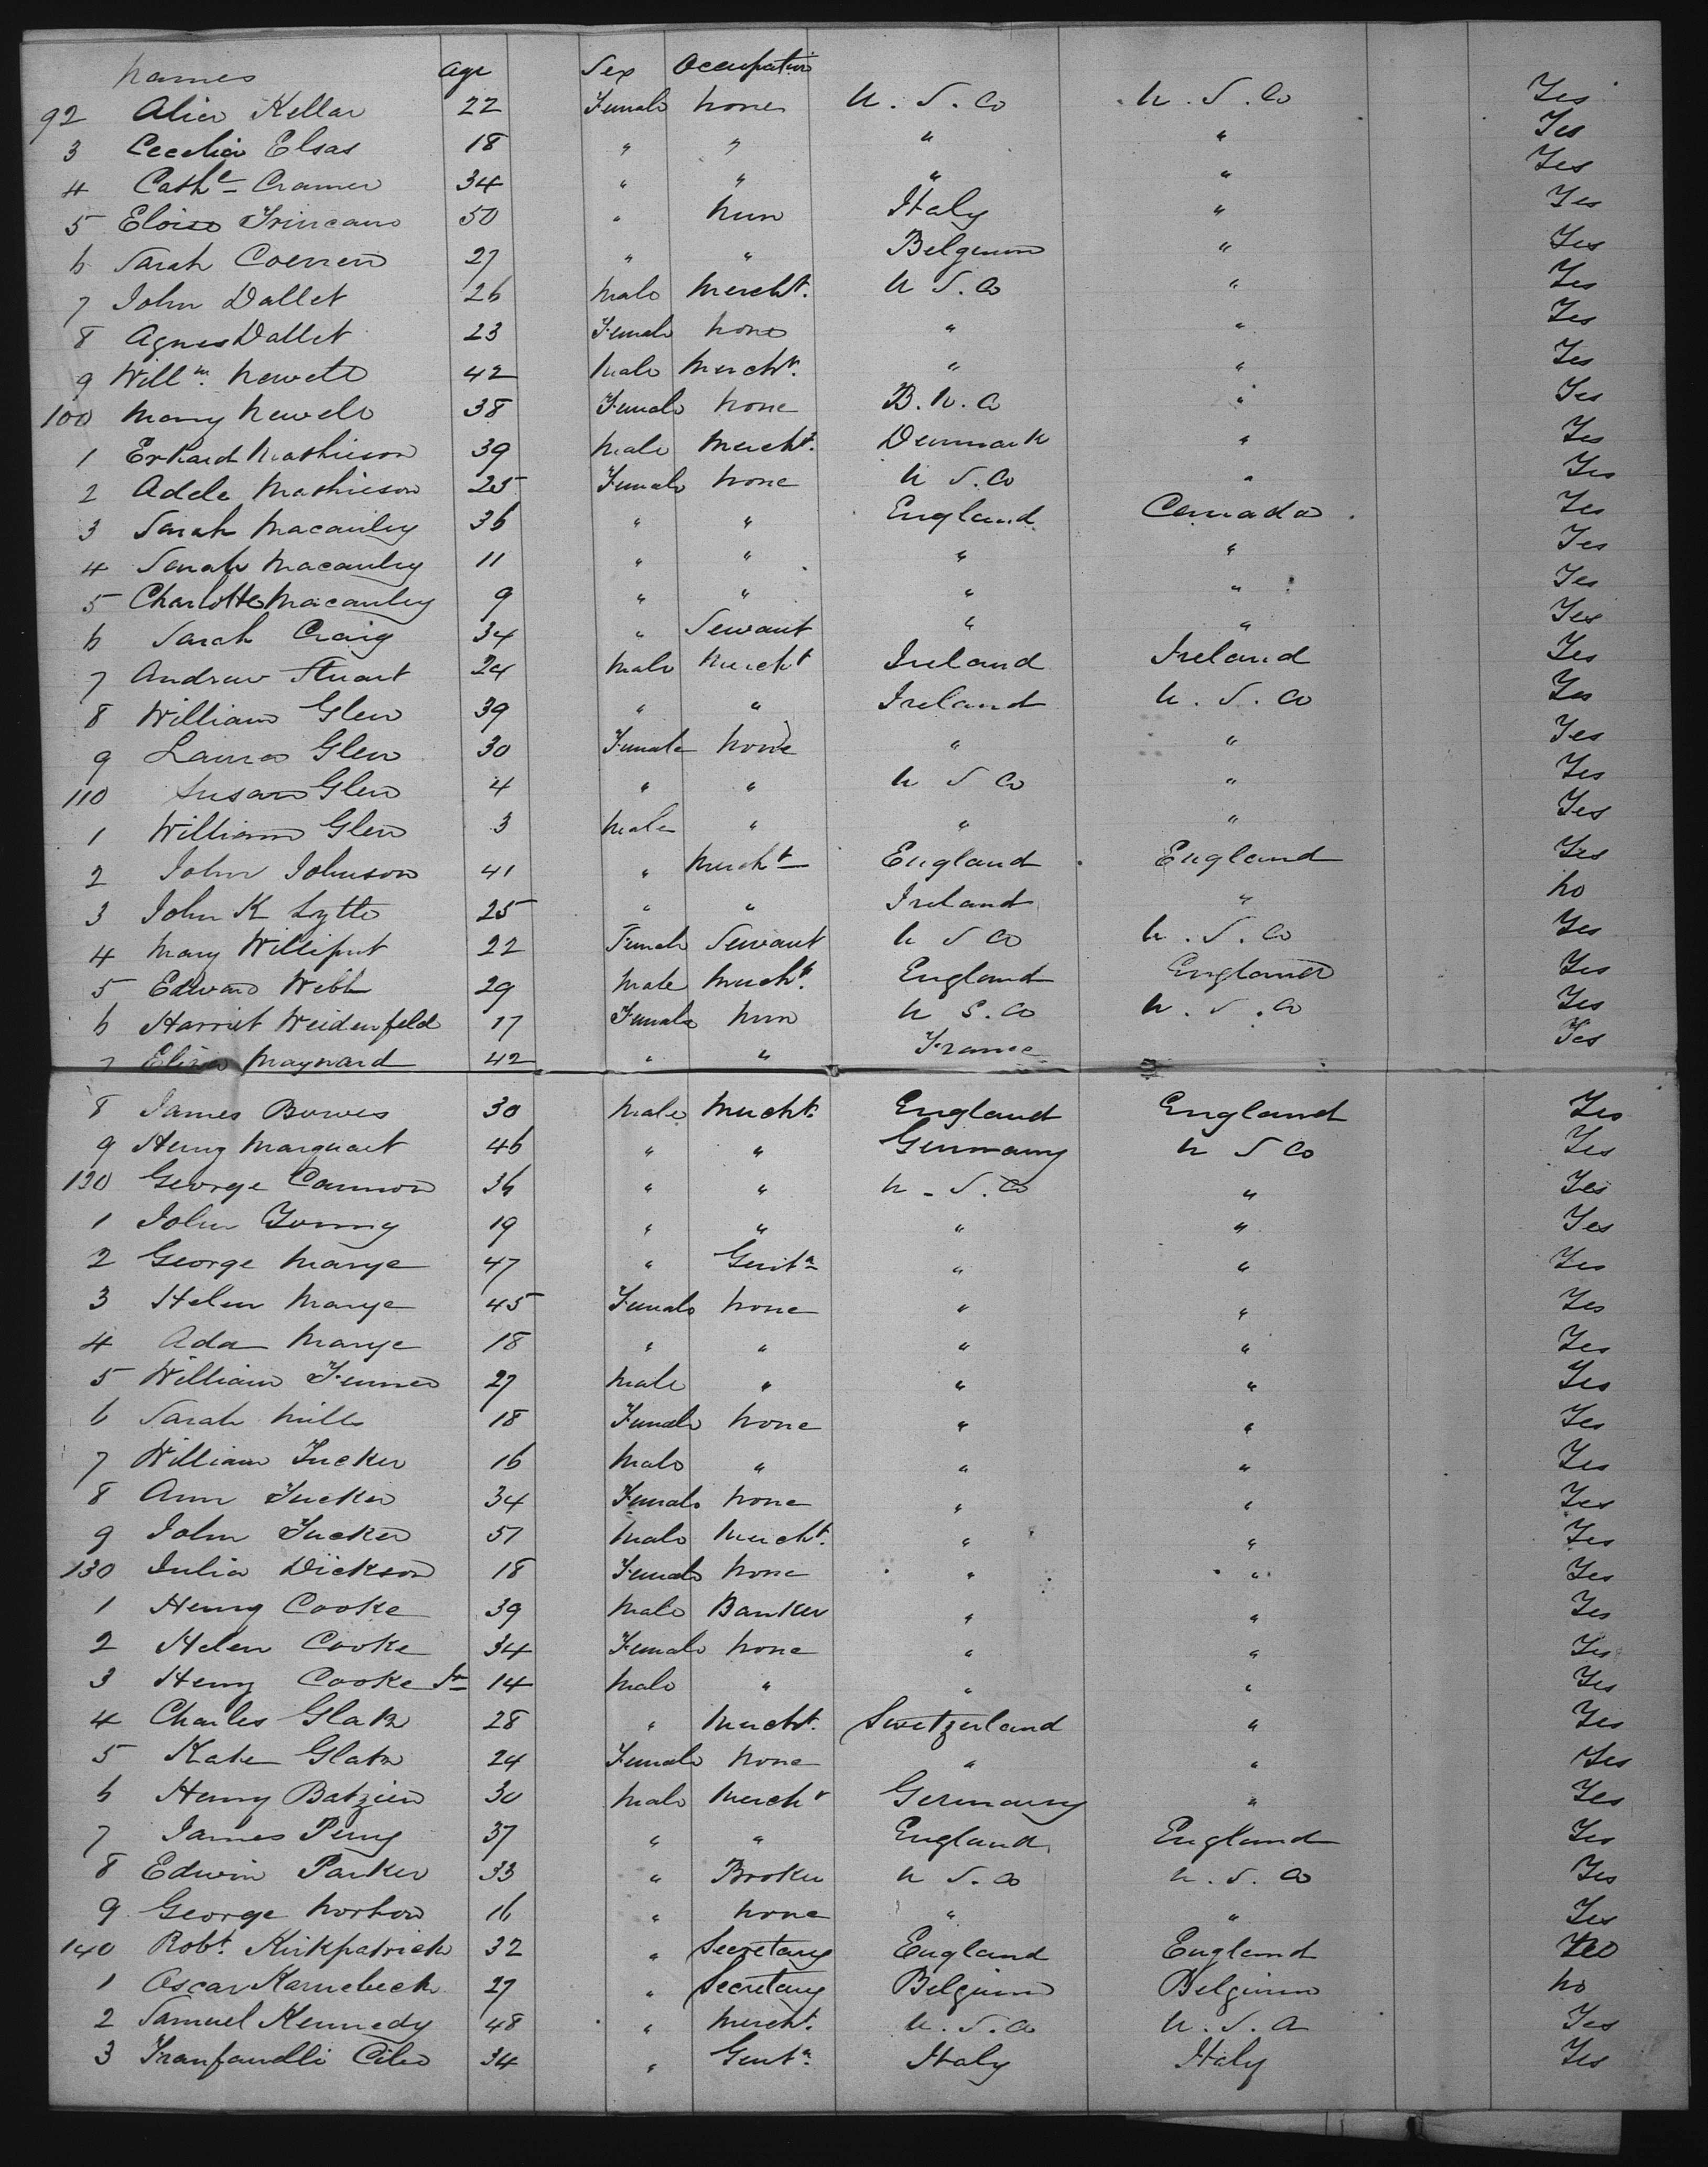 Names Age Sex Occupation
92 Alice Kellar 22 Female None U. S. a U. S. a Yes
3 Cecelia Elsas 18 " " " " Yes
4 Cathe Cramer 34 " " " " Yes
5 Eloise Trincano 50 " Nun Italy " Yes
6 Sarah Coenen 27 " " Belgium " Yes
7 John Dallet 26 Male Mercht. U S. a " Yes
8 Agnes Dallet 23 Female None " " Yes
9 Willm. Newell 42 Male Mercht. " " Yes
100 Mary Newell 38 Female None B. N. a " Yes
1 Erhard Mathieson 39 Male Mercht. Denmark " Yes
2 Adele Mathieson 25 Female None U S. a " Yes
3 Sarah Macauley 36 " " England Canada Yes
4 Sarah Macauley 11 " " " " Yes
5 Charlotte Macauley 9 " " " " Yes
6 Sarah Craig 34 " Servant " " Yes
7 Andrew Stuart 24 Male Mercht Ireland Ireland Yes
8 William Glen 39 " " Ireland U. S. a Yes
9 Laura Glen 30 Female None " " Yes
110 Susan Glen 4 " " U S a " Yes
1 William Glen 3 Male " " " Yes
2 John Johnson 41 " Mercht England England Yes
3 John K Lytle 25 " " Ireland " No
4 Mary Williput 22 Female Servant U S a U. S. a Yes
5 Edward Webb 29 Male Mercht. England England Yes
6 Harriet Weidenfeld 17 Female Nun U S. a U. S. a Yes
7 Eliza Maynard 42 " " France " Yes
8 James Bowes 30 Male Mercht. England England Yes
9 Henry Marquart 46 " " Germany U S a Yes
120 George Cannon 36 " " U. S. a " Yes
1 John Young 19 " " " " Yes
2 George Marye 47 " Gentn " " Yes
3 Helen Marye 45 Female None " " Yes
4 Ada Marye 18 " " " " Yes
5 William Fenner 27 Male " " " Yes
6 Sarah Mills 18 Female None " " Yes
7 William Tucker 16 Male " " " Yes
8 Ann Tucker 34 Female None " " Yes
9 John Tucker 57 Male Mercht. " " Yes
130 Julia Dickson 18 Female None " " Yes
1 Henry Cooke 39 Male Banker " " Yes
2 Helen Cooke 34 Female None " " Yes
3 Henry Cooke Jr 14 Male " " " Yes
4 Charles Glatz 28 " Mercht. Switzerland " Yes
5 Kate Glatz 24 Female None " " Yes
6 Henry Batzien 30 Male Mercht Germany " Yes
7 James Perry 37 " " England England Yes
8 Edwin Parker 33 " Broker U S. a U. S. a Yes
9 George Norton 16 " None " " Yes
140 Robt. Kirkpatrick 32 " Secretary England England
1 Oscar Karnebeek 27 " Secretary Belgium Belgium No
2 Samuel Kennedy 48 " Mercht. U. S. a U. S. a Yes
3 Cibo 34 " Gentn Italy Italy Yes